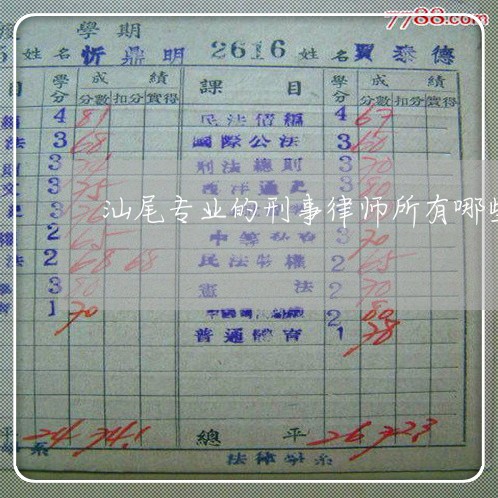 7788.com
學期
姓名 忻鼎明 2616 姓名 賈泰德
目 學分 成績 課目 學分 成績
分數 扣分 實得 分數 扣分 實得
4 81 民法債編 4 67
法 3 68 國際公法 3 60
3 刑法總則 3 70
文 3 75 西洋通史 3 80
汕尾专业的刑事律师所有哪些
2 65 3 70
法 2 68 68 民法物權 2 65
3 80 憲法 2 70
1 70 2 80
普通體育 1 78
平 24 74.1 總平 26 72.3
系 法律學系